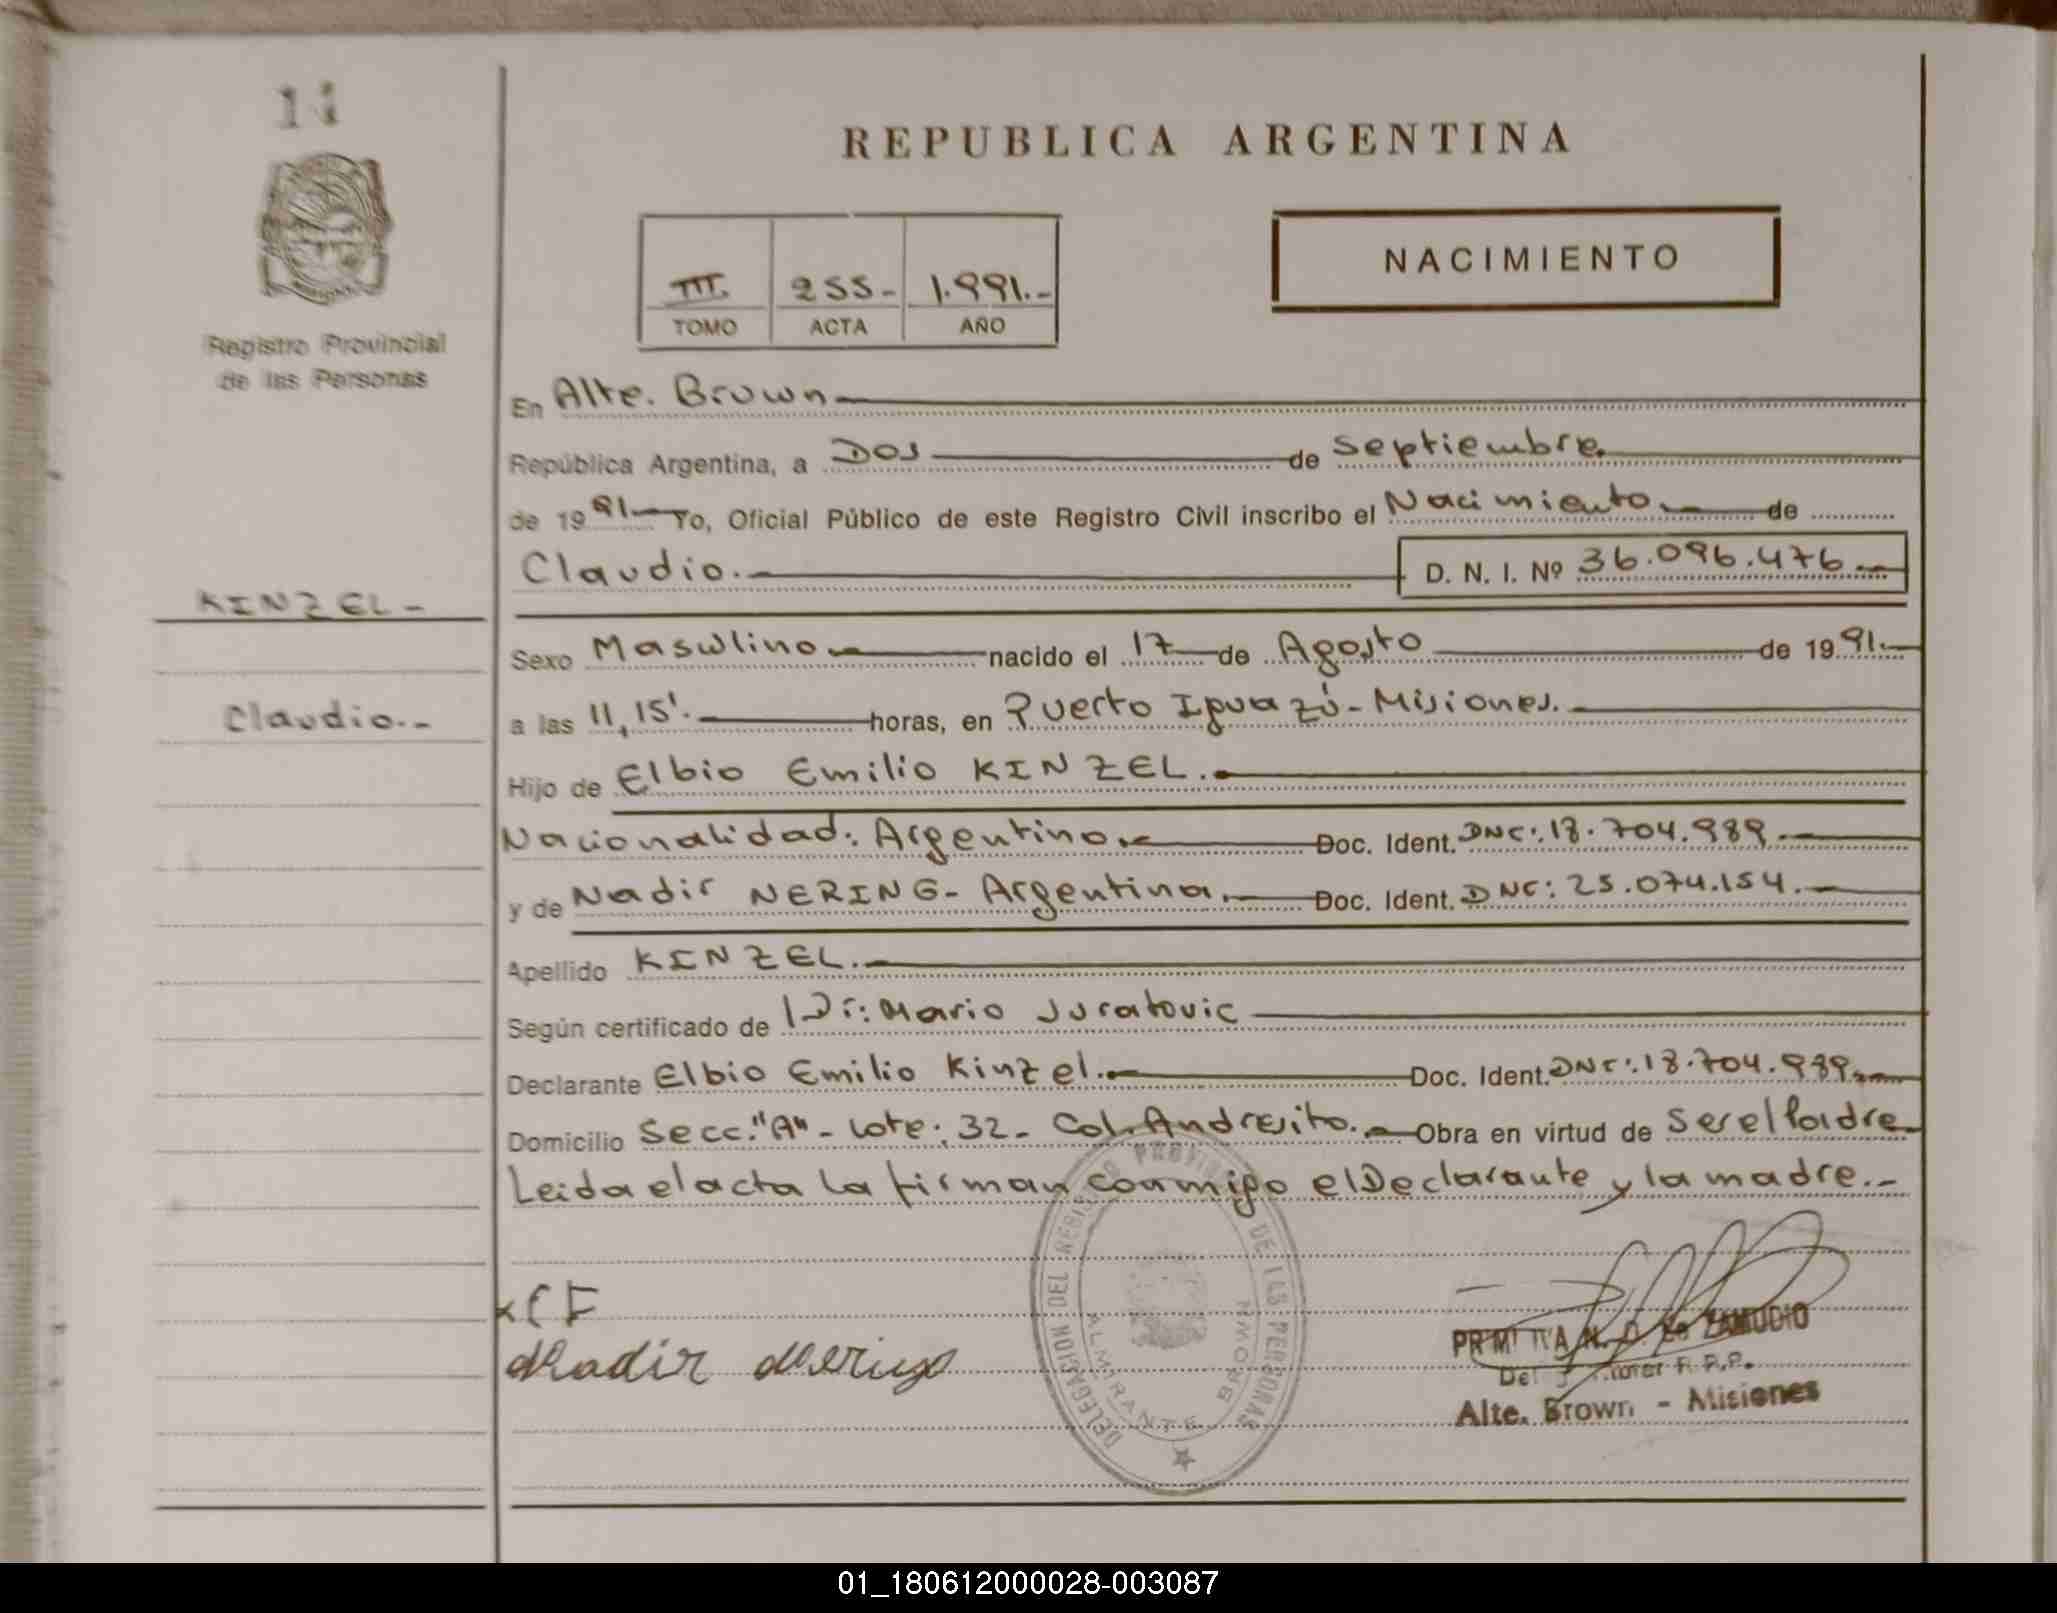 11
Registro Provincial
de las Personas
KINZEL-
Claudio.-
REPUBLICA ARGENTINA
III. 255- 1.991.-
TOMO ACTA AÑO
NACIMIENTO
En Alte. Brown
República Argentina, a Dos de Septiembre.
de 1991 Yo, Oficial Público de este Registro Civil inscribo el Nacimiento de
Claudio. D. N. I. Nº 36.096.476
Sexo Masculino nacido el 17 de Agosto de 1991.
a las 11,15'. horas, en Puerto Iguazú-Misiones.
Hijo de Elbio Emilio KINZEL.
Nacionalidad: Argentino. Doc. Ident. DNI: 18.704.989
y de Nadir NERING- Argentina. Doc. Ident. DNI: 25.074.154.
Apellido KINZEL.
Según certificado de Dr: Mario Juratovic
Declarante Elbio Emilio Kinzel. Doc. Ident. DNI: 18.704.989.
Domicilio Secc. "A" - Lote: 32- Col. Andresito. Obra en virtud de Ser el Padre
Leida el acta la firman conmigo el Declarante y la madre.-
DELEGACION DEL REGISTRO PROVINCIAL DE LAS PERSONAS
ALMIRANTE BROWN
Nadir Nering
ZAMUDIO
R.P.P.
Alte. Brown - Misiones
01_180612000028-003087